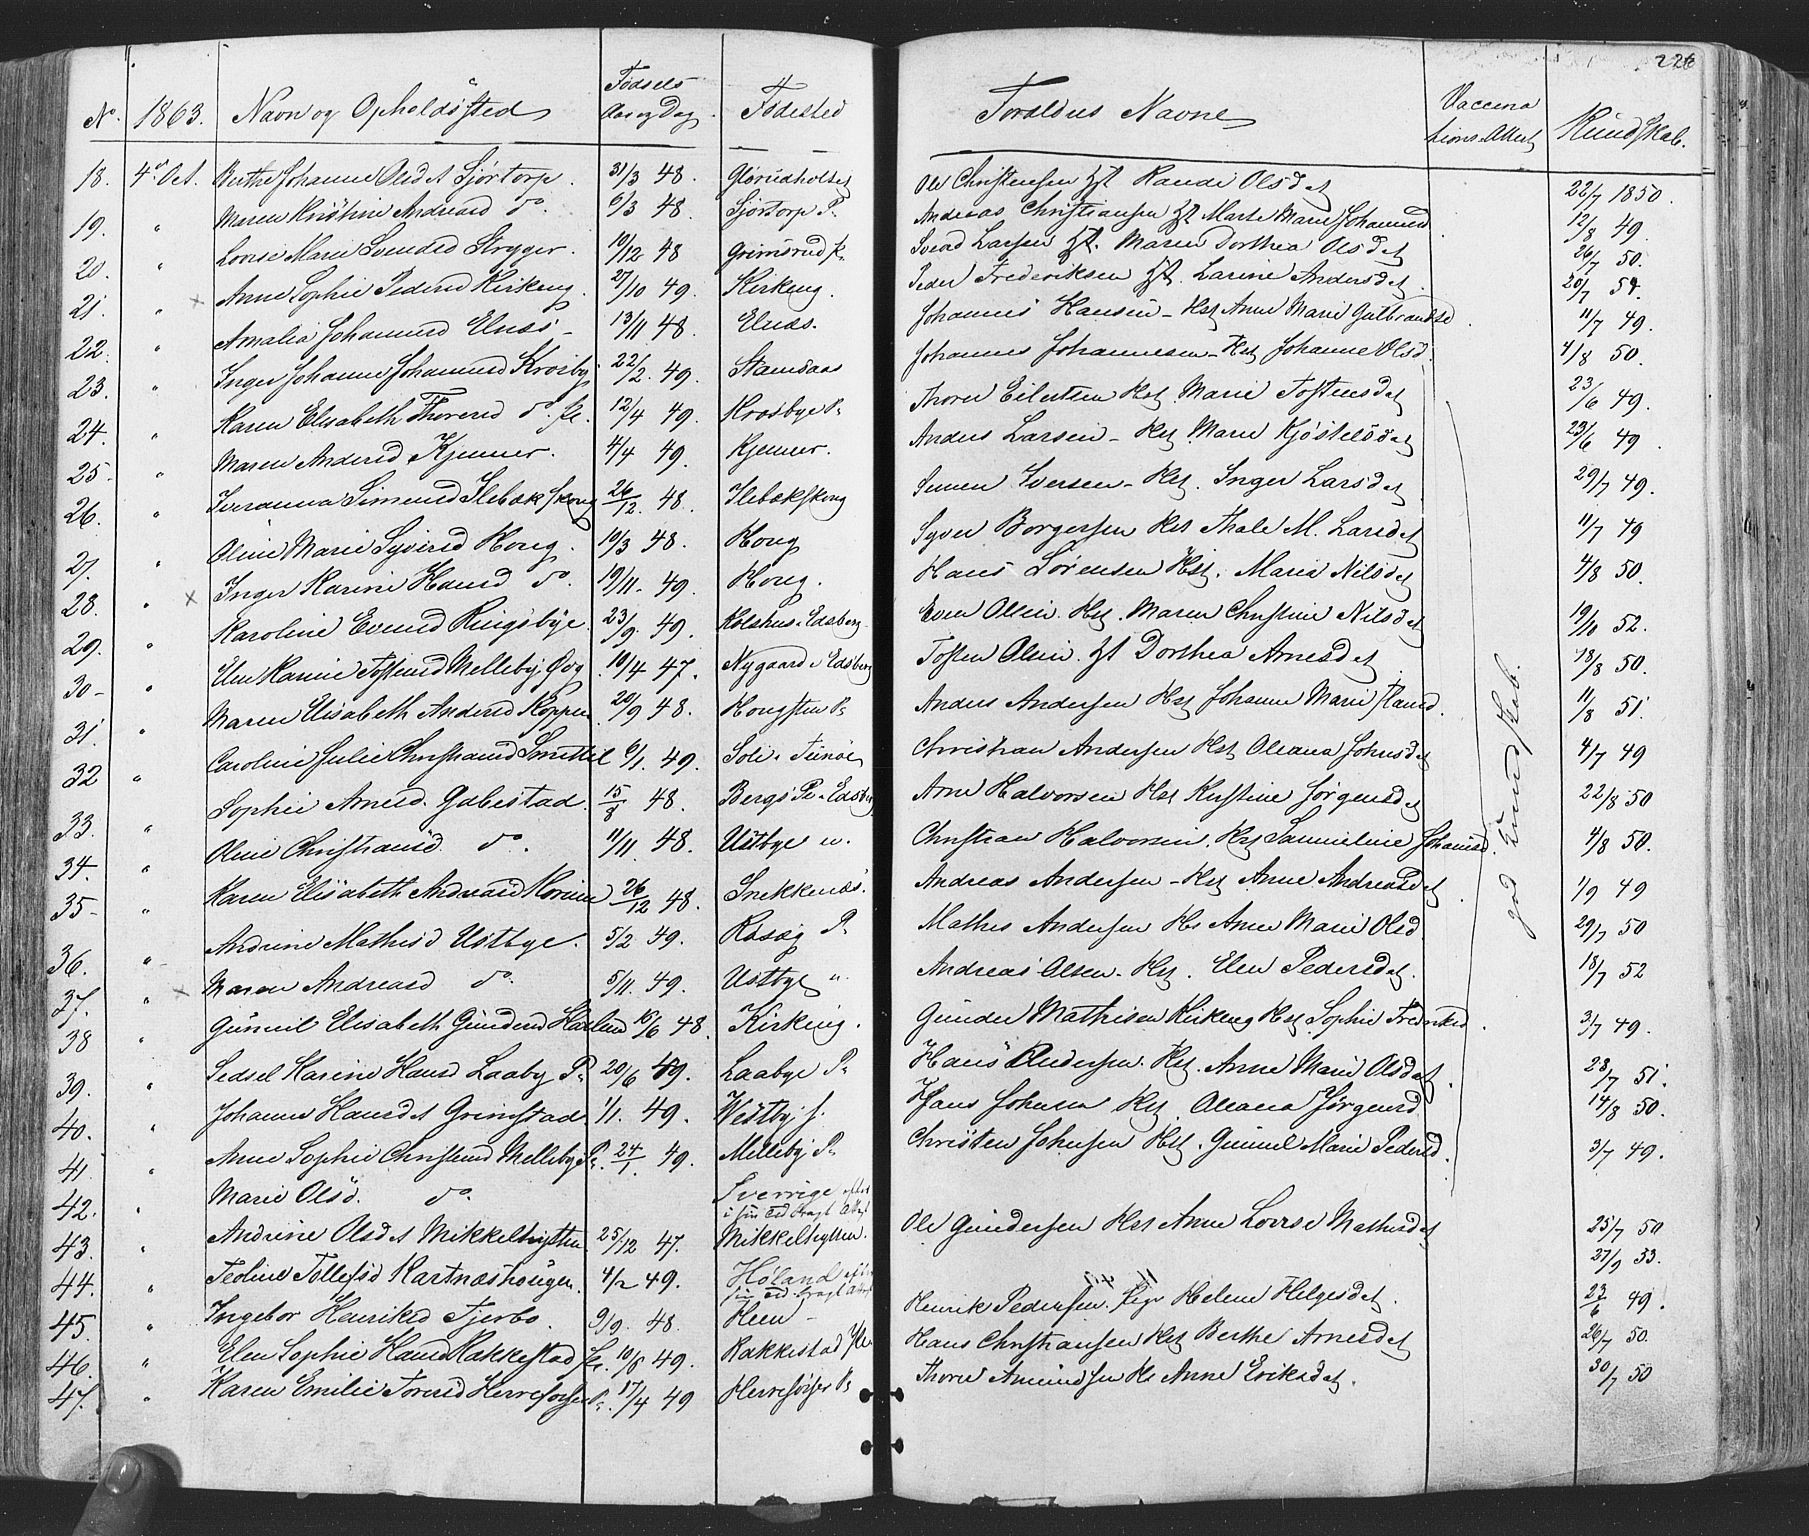 226
No. 1863. Navn og Opholdssted Fødsels Aar og Dag. Fødested Forældres Navne Vaccinations Attest Kundskab.
18. 4de Oct. Berthe Johanne Olsdet Sjørtorp. 31/3 48. Glørudholtet Ole Christensen Gst Randi Olsdet 22/7 1850.
19. " Maren Kristine Andreasd do. 6/3 48. Sjørtorp P. Andreas Christiansen Gst Marte Marie Johannesd 12/8 49.
20. " Lovise Marie Svendsd Strygger. 19/12 48 Grimsrud P. Svend Larsen Gst. Maren Dorthea Olsdet 26/7 50.
21. " Anne Sophie Pedersd Kirkeng. 27/10 49. Kirkeng. Peder Frederiksen Gst. Larine Andersdet. 20/7 54.
22. " Amalia Johannesd Elnæs 13/11 48. Elnæs. Johannes Hansen - Hst Anne Marie Gulbrandsd. 11/7 49.
23. " Inger Johanne Johannesd Krosby 22/2. 49. Stamsaas Johannes Johannesen - Hst Johanne Olsd. 4/8 50.
24. " Karen Elisabeth Thoresd do. Pe. 12/4 49. Krosbye P. Thorer Eilertsen Hst. Marie Tostensdet 23/6 49.
25. " Maren Andersd Kjenner. 4/4 49. Kjenner. Anders Larsen - Hst Marie Kjøstelsdet 23/6 49.
26. " Iveranna Simensd Ilebækskoug 26/12. 48. Ilebækskoug Simen Iversen - Hst. Inger Larsdet 29/7 49.
27. " Oline Marie Syversd Houg. 19/3 48. Houg Syver Borgersen Hst Thale M. Larsdet 11/7 49
28. " Inger Karine Hansd do. 19/11. 49. Houg. Hans Sørensen Hst. Maria Nilsdet 4/8 50.
29. " Karoline Evensd Ringsbye. 23/9. 49. Kolshus. Edsberg Even Olsen. Hst. Maren Christine Nilsdet 19/10 52.
30 - " Elen Karine Tostensd Melleby. Øvg. 10/4 47. Nygaard i Edsberg Tosten Olsen. Gst Dorthea Arnesdet 18/8 50.
31. " Maren Elisabeth Andersd Koppen. 20/9 48. Hougsten P. Anders Andersen Hst Johanne Marie Hansd. 11/8 51.
32 " Caroline Julie Christiansd Smittil 6/1. 49. Soli. Tunøe Christian Andersen Hst Oleana Johnsdet 4/7 49
33. " Sophie Arnesd. Gabestad. 15/8 48. Bergs P. Edsberg Arne Halvorsen Hst Kirstine Jørgensdet 22/8 50
34. " Oline Christiansd. do. 11/11. 48. Ustbye n. Christian Halvorsen. Hst Samueline Johansd. 4/8 50.
35 - " Karen Elisabeth Andreasd 26/12 48. Snikkenæs. Andreas Andersen - Hst Anne Andreasdet. 1/9 49
36. " Andrine Mathisd Ustbye. 5/2 49. P. Mathis Andersen Hs Anne Marie Olsd. 29/7 50
37. " Maren Andreasd do. 5/11. 49. Ustbye " Andreas Olsen - Hst. Elen Pedersdet. 18/7 52
38 " Gunnil Elisabeth Gundersd Haslem 10/6 48. Kirkeng. Gunder Mathisen Kirkeng Hst Sophie Fredriksd. 3/7 49.
39. " Sedsel Karine Hansd Laaby P. 20/6 49. Laabye P. Hans Andersen. Hst. Anne Marie Olsdet. 28/7 51.
40. " Johanne Hansdet Grimstad 1/1. 49. Vestby. Hans Johnsen Hst. Oleana Jørgensd 14/8 50.
41. " Anne Sophie Christensd Melleby P. 24/1. 49. Melleby P. Christen Johnsen Hst. Gunnel Marie Pedersd. 3/7 49.
god Kundskab.
42. " Marie Olsd. do. Sverrige efter
i sin Tid bragt Attest
43. " Andrine Olsdet Mikkelhytten 25/12 47. Mikkelhytten. Ole Gundersen Hst Anne Lovise Mathisdet 25/7 50
44. " Teoline Tollefsd Kartnæshougen. 4/2 49. Høland efter 27/9 53.
sin Tid bragt Attest
45. " Ingebor Henriksd Tjerbo. 9/9. 48. Heen - Henrik Pedersen. Helene Helgesdet. 23/6 49.
46. " Elen Sophie Hansd Rakkestad Pe. 10/8 49. Rakkestad Hans Christiansen Hst Berthe Arnesdet 26/7 50.
47. " Karen Emilie Toresd Herresørser P. 17/4 49 Herresørser P. Thorer Amundsen Hs Anne Eriksdet. 30/7 50